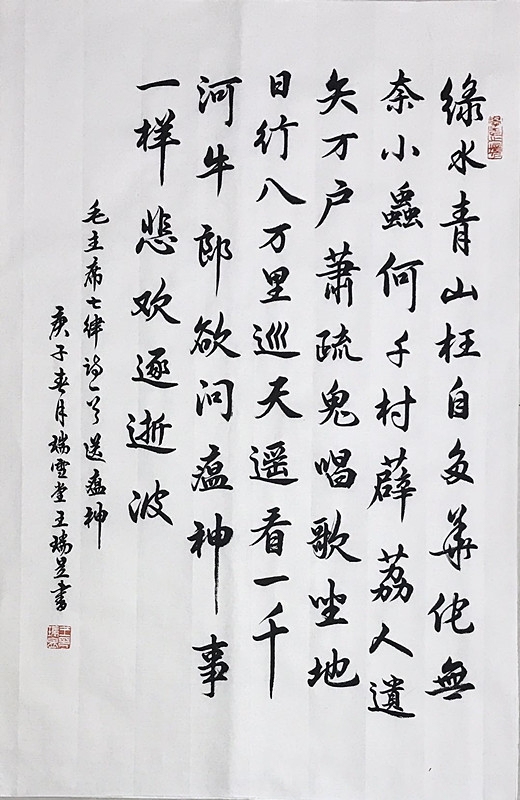 緑水青山枉自多華佗無
奈小蟲何千村薜荔人遺
矢万户蕭疏鬼唱歌坐地
日行八万里巡天遥看一千
河牛郎欲问瘟神事
一样悲欢逐逝波
毛主席七律诗一首送瘟神
庚子春月瑞雪堂王瑞書